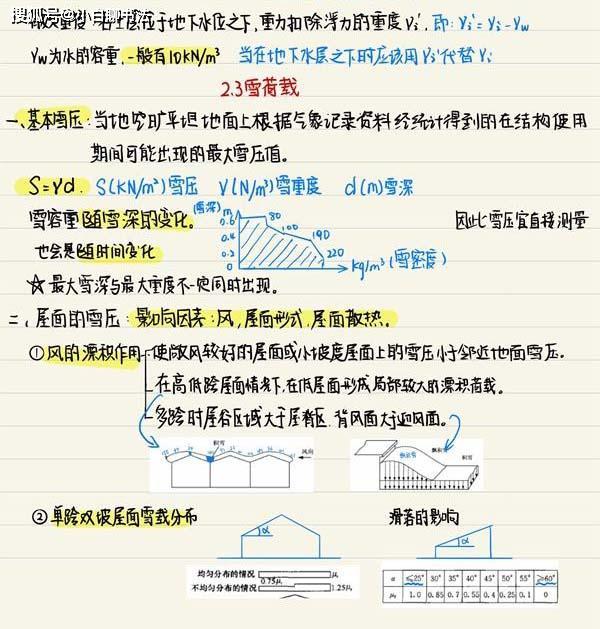 搜狐号@小白聊书法
有效重度 若土层位于地下水位之下,重力扣除浮力的重度γi′,即:γi′=γi-γw
γw为水的容重,一般有10KN/m³ 当在地下水层之下时应该用γi′代替γi
2.3雪荷载
一、基本雪压:当地空旷平坦地面上根据气象记录资料经统计得到的在结构使用
期间可能出现的最大雪压值。
S=γd. S(KN/m²)雪压 γ(N/m³)雪重度 d(m)雪深
雪容重随雪深的变化。 (雪深) m 因此雪压宜直接测量
也会是随时间变化
0.6 0.4 0.2 0 80 100 190 220 kg/m³(雪密度)
☆最大雪深与最大重度不一定同时出现。
二、屋面的雪压:影响因素:风,屋面形式,屋面散热。
①风的漂积作用-使敞风较好的屋面或小坡度屋面上的雪压小于邻近地面雪压。
-在高低跨屋面情况下,在低屋面形成局部较大的漂积荷载。
-多跨时屋谷区域大于屋脊区,背风面大于迎风面。
积雪 风向 飘积雪 积雪
②单跨双坡屋面雪载分布 滑落的影响
α α
均匀分布的情况 μr
不均匀分布的情况 0.75μr 1.25μr
α ≤25° 30° 35° 40° 45° 50° 55° ≥60°
μr 1.0 0.85 0.7 0.55 0.4 0.25 0.1 0